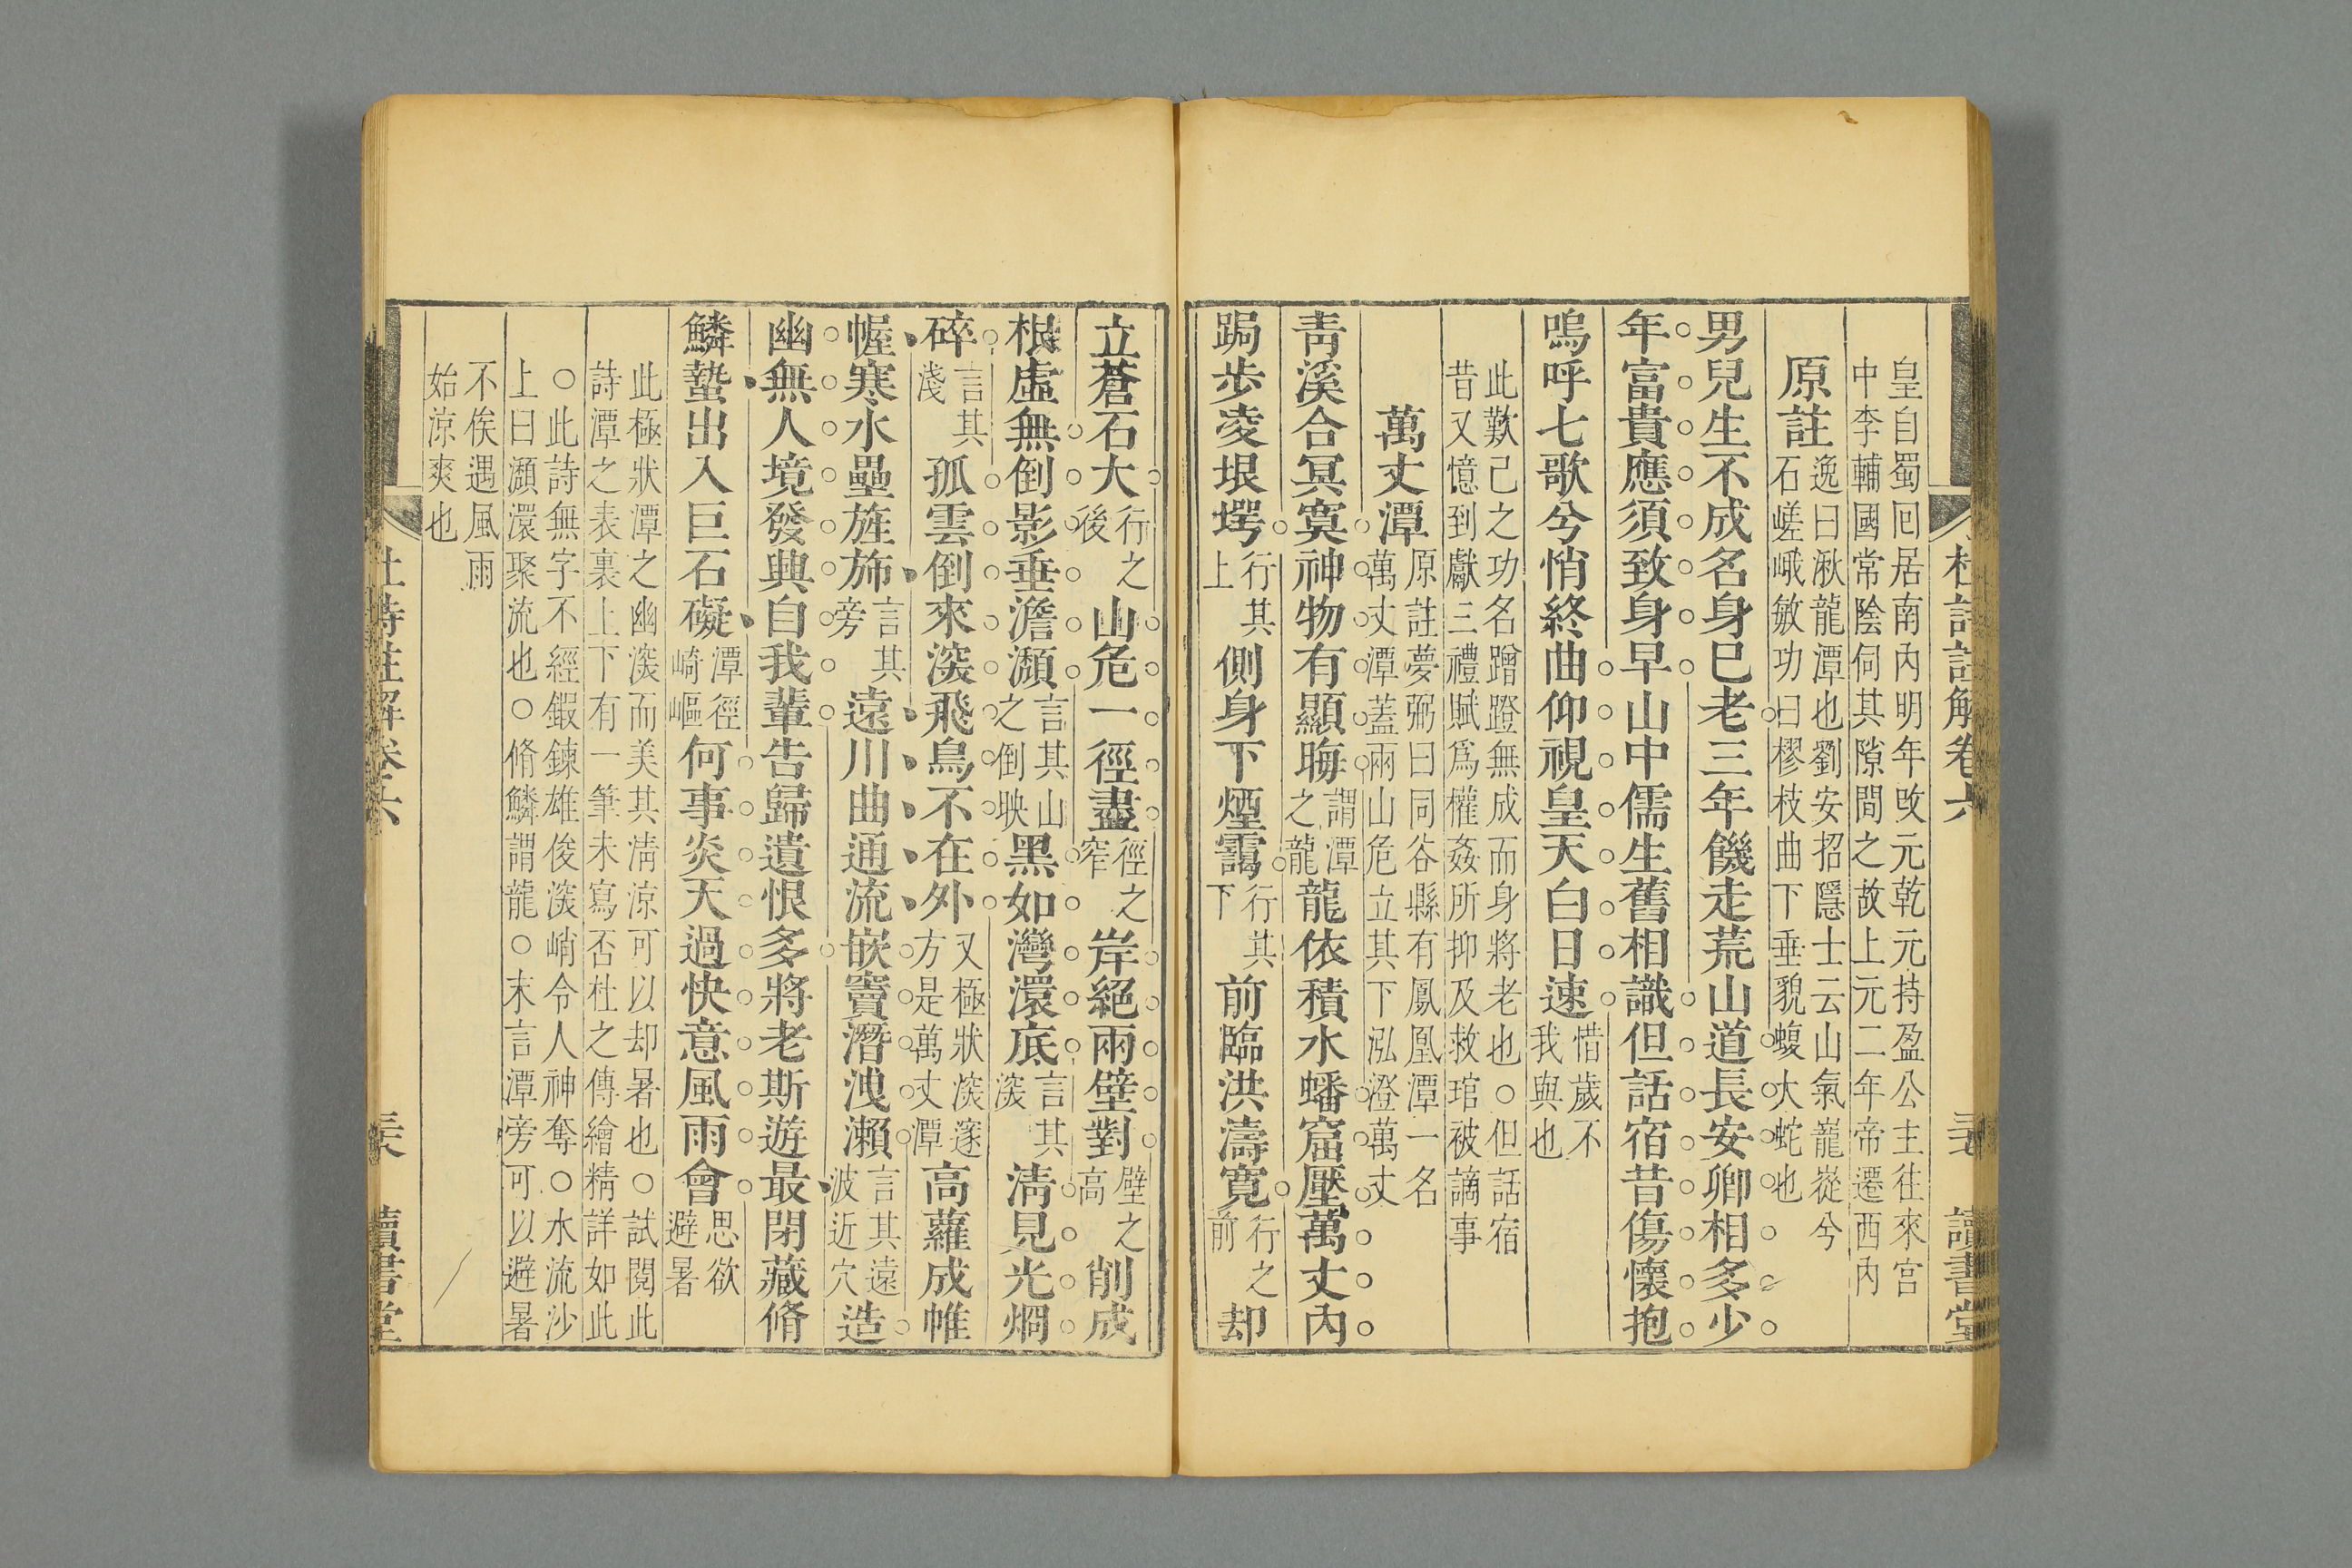 杜詩註解卷六 讀書堂
皇自蜀囘居南內明年攺元乾元持盈公主往來宮
中李輔國常陰伺其隙間之故上元二年帝遷西內
原註
逸曰湫龍潭也劉安招隱士云山氣巃嵸兮
石嵯峨敏功曰樛枝曲下垂貌蝮大蛇也
男兒生不成名身已老三年饑走荒山道長安卿相多少
年富貴應須致身早山中儒生舊相識但話宿昔傷懷抱
嗚呼七歌兮悄終曲仰視皇天白日速惜歲不我與也
此歎己之功名蹭蹬無成而身將老也○但話宿
昔又憶到獻三禮賦爲權姦所抑及救琯被謫事
萬丈潭
原註夢弼曰同谷縣有鳳凰潭一名
萬丈潭蓋兩山危立其下泓澄萬丈
靑溪合冥寞神物有顯晦謂潭之龍龍依積水蟠窟壓萬丈內
跼步凌垠堮行其上側身下煙靄行其下前臨洪濤寬行之前却
立蒼石大行之後山危一徑盡徑之窄岸絕兩壁對壁之高削成
根虛無倒影垂澹瀩言其山之倒映黑如灣澴底言其湥淸見光烱
碎言其淺孤雲倒來湥飛鳥不在外又極狀湥邃方是萬丈潭高蘿成帷
幄寒水壘旌斾言其旁遠川曲通流嵌竇潛洩瀨言其遠波近穴造
幽無人境發興自我輩告歸遺恨多將老斯遊最閉藏脩
鱗蟄出入巨石礙潭徑崎嶇何事炎天過快意風雨會思欲避暑
此極狀潭之幽湥而美其淸涼可以却暑也○試閱此
詩潭之表裏上下有一筆未寫否杜之傳繪精詳如此
○此詩無字不經鍜鍊雄俊湥峭令人神奪○水流沙
上曰瀩澴聚流也○脩鱗謂龍○末言潭旁可以避暑
不俟遇風雨
始涼爽也
杜詩註解卷六 讀書堂